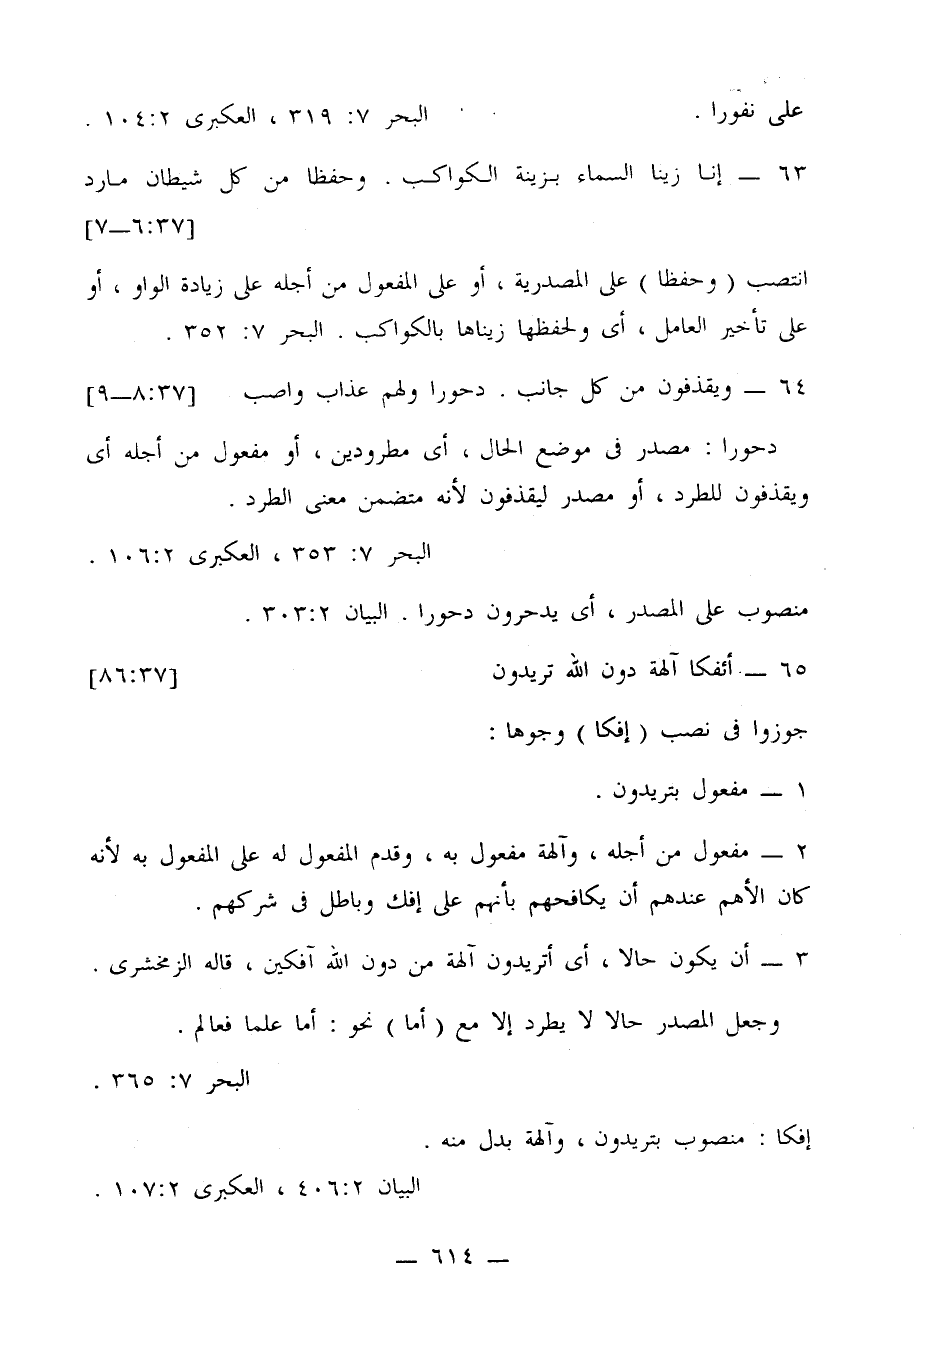 على نفورا . البحر ٧: ٣١٩ ، العكبرى ١٠٤:٢ .
٦٣ — إنا زينا السماء بزينة الكواكب . وحفظا من كل شيطان مارد
[٦:٣٧—٧]
انتصب ( وحفظا ) على المصدرية ، أو على المفعول من أجله على زيادة الواو ، أو
على تأخير العامل ، أى ولحفظها زيناها بالكواكب . البحر ٧: ٣٥٢ .
٦٤ — ويقذفون من كل جانب . دحورا ولهم عذاب واصب [٨:٣٧—٩]
دحورا : مصدر فى موضع الحال ، أى مطرودين ، أو مفعول من أجله أى
ويقذفون للطرد ، أو مصدر ليقذفون لأنه متضمن معنى الطرد .
البحر ٧: ٣٥٣ ، العكبرى ١٠٦:٢ .
منصوب على المصدر ، أى يدحرون دحورا . البيان ٣٠٣:٢ .
٦٥ — أئفكا آلهة دون الله تريدون [٨٦:٣٧]
جوزوا فى نصب ( إفكا ) وجوها :
١ — مفعول بتريدون .
٢ — مفعول من أجله ، وآلهة مفعول به ، وقدم المفعول له على المفعول به لأنه
كان الأهم عندهم أن يكافحهم بأنهم على إفك وباطل فى شركهم .
٣ — أن يكون حالا ، أى أتريدون آلهة من دون الله آفكين ، قاله الزمخشرى .
وجعل المصدر حالا لا يطرد إلا مع ( أما ) نحو : أما علما فعالم .
البحر ٧: ٣٦٥ .
إفكا : منصوب بتريدون ، وآلهة بدل منه .
البيان ٤٠٦:٢ ، العكبرى ١٠٧:٢ .
— ٦١٤ —